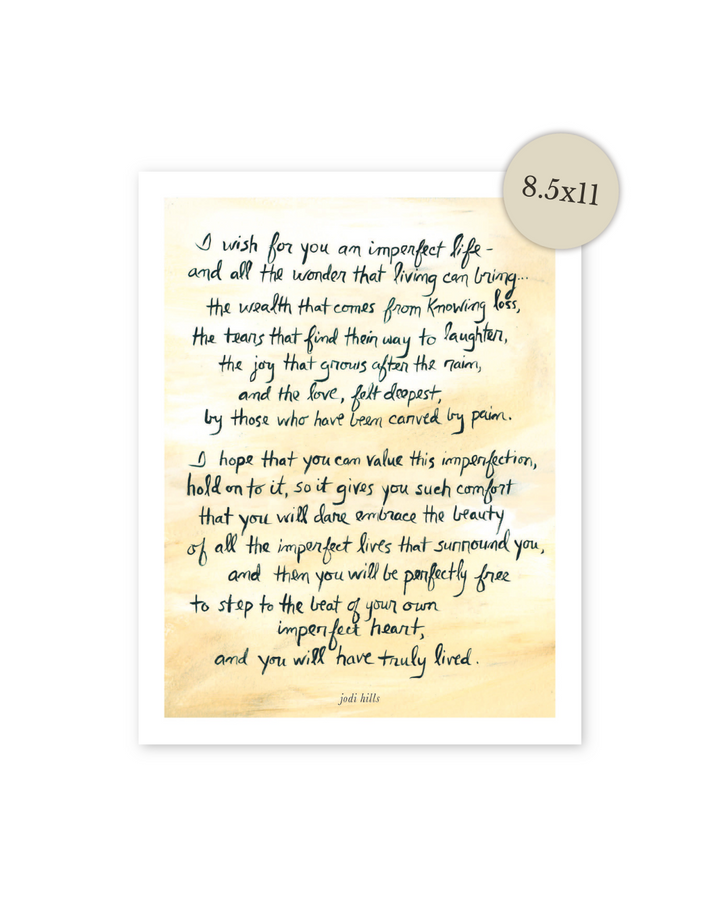 8.5x11
I wish for you an imperfect life-
and all the wonder that living can bring...
the wealth that comes from knowing loss,
the tears that find their way to laughter,
the joy that grows after the rain,
and the love, felt deepest,
by those who have been carved by pain.
I hope that you can value this imperfection,
hold on to it, so it gives you such comfort
that you will dare embrace the beauty
of all the imperfect lives that surround you,
and then you will be perfectly free
to step to the beat of your own
imperfect heart,
and you will have truly lived.
jodi hills